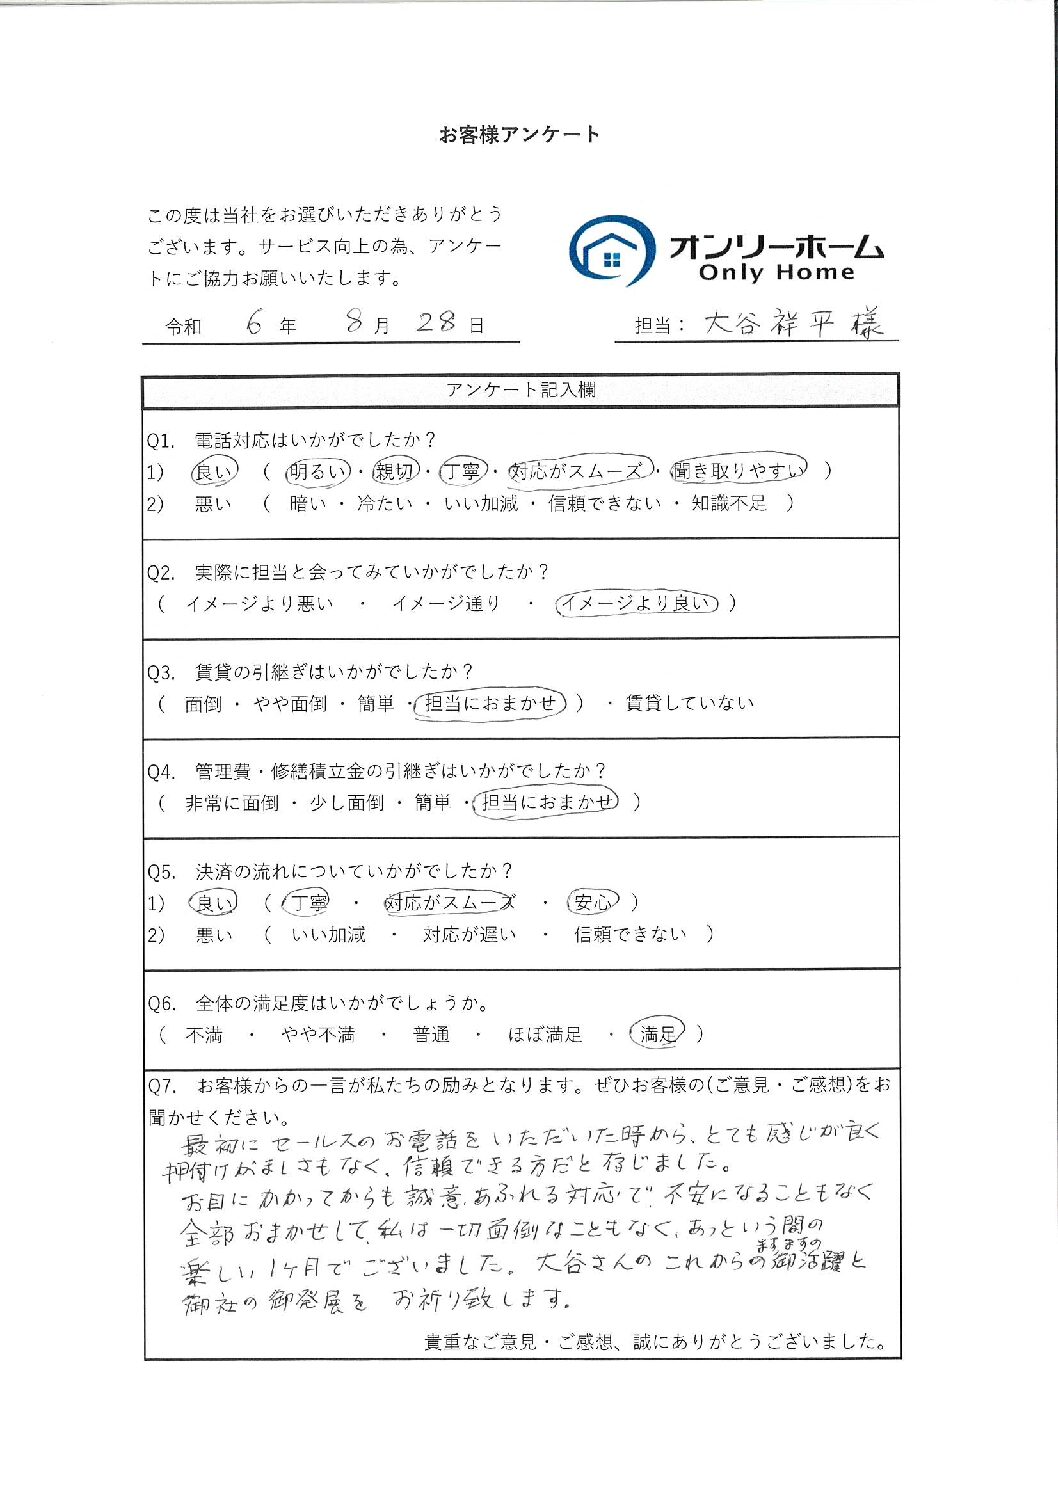 お客様アンケート
この度は当社をお選びいただきありがとう
ございます。サービス向上の為、アンケー
トにご協力お願いいたします。
オンリーホーム
Only Home
令和 6 年 8 月 28 日
担当： 大谷祥平様
アンケート記入欄
Q1. 電話対応はいかがでしたか？
1) 良い （ 明るい ・ 親切 ・ 丁寧 ・ 対応がスムーズ ・ 聞き取りやすい ）
2) 悪い （ 暗い ・ 冷たい ・ いい加減 ・ 信頼できない ・ 知識不足 ）
Q2. 実際に担当と会ってみていかがでしたか？
（ イメージより悪い ・ イメージ通り ・ イメージより良い ）
Q3. 賃貸の引継ぎはいかがでしたか？
（ 面倒 ・ やや面倒 ・ 簡単 ・ 担当におまかせ ） ・ 賃貸していない
Q4. 管理費・修繕積立金の引継ぎはいかがでしたか？
（ 非常に面倒 ・ 少し面倒 ・ 簡単 ・ 担当におまかせ ）
Q5. 決済の流れについていかがでしたか？
1) 良い （ 丁寧 ・ 対応がスムーズ ・ 安心 ）
2) 悪い （ いい加減 ・ 対応が遅い ・ 信頼できない ）
Q6. 全体の満足度はいかがでしょうか。
（ 不満 ・ やや不満 ・ 普通 ・ ほぼ満足 ・ 満足 ）
Q7. お客様からの一言が私たちの励みとなります。ぜひお客様の(ご意見・ご感想)をお
聞かせください。
最初にセールスのお電話をいただいた時から、とても感じが良く
押付けがましさもなく、信頼できる方だと存じました。
お目にかかってからも誠意あふれる対応で、不安になることもなく
全部おまかせして、私は一切面倒なこともなく、あっという間の
ますますの
楽しい1ヶ月でございました。大谷さんのこれからの御活躍と
御社の御発展をお祈り致します。
貴重なご意見・ご感想、誠にありがとうございました。